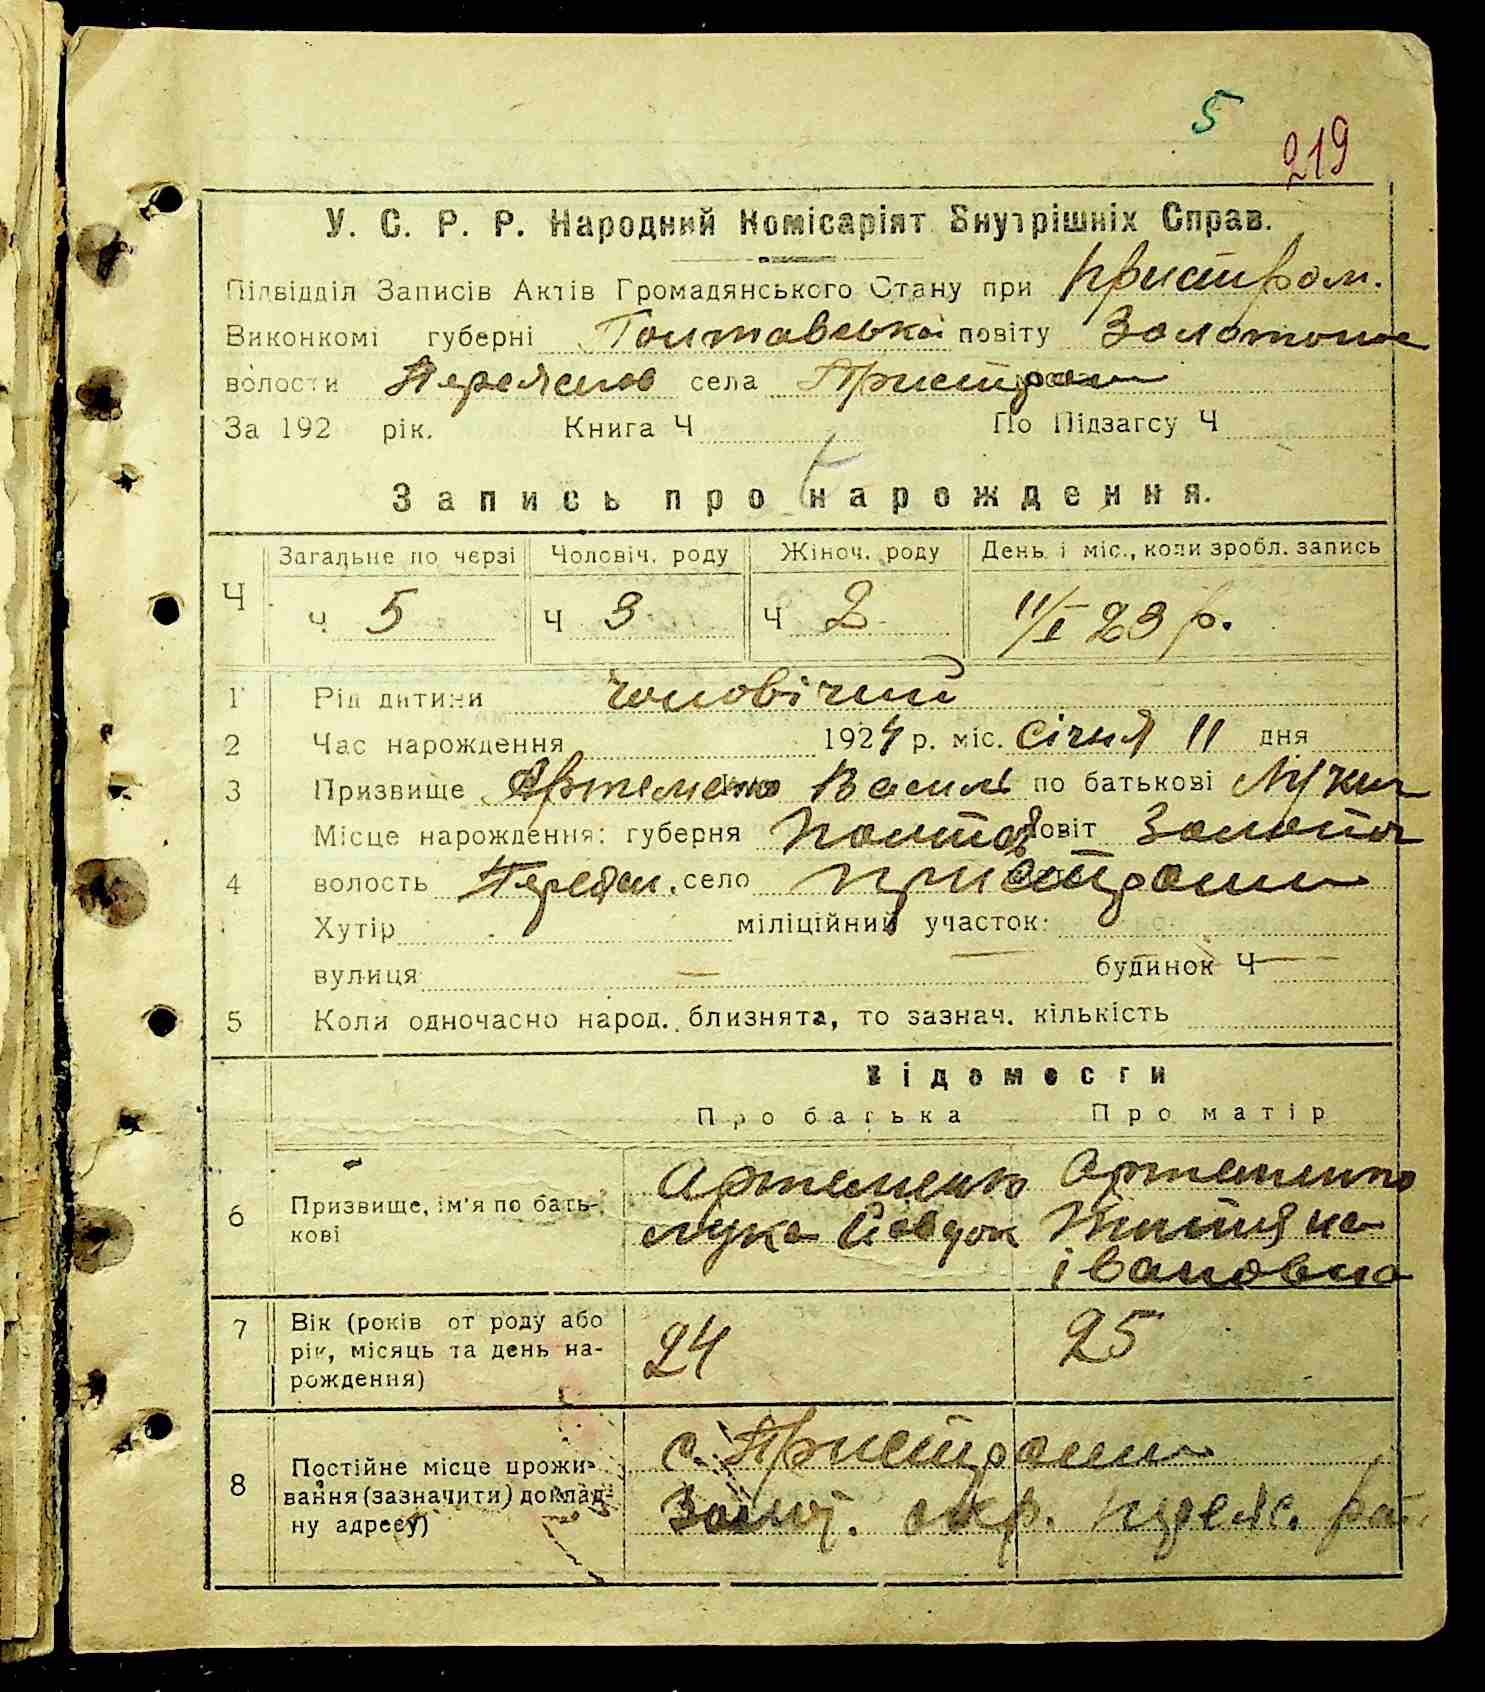 5
219
У. С. Р. Р. Народний Комісаріят Внутрішніх Справ.
Підвідділ Записів Актів Громадянського Стану при Пристром.
Виконкомі губерні Полтавської повіту Золотонос
волости Переяслов села Пристром
За 192 рік. Книга Ч По Підзагсу Ч
Запись про нарождення.
Ч Загальне по черзі Чоловіч. роду Жіноч. роду День і міс., коли зробл. запись
Ч 5 Ч 3 Ч 2 11/I 23 р.
1 Рід дитини чоловічий
2 Час нарождення 1924 р. міс. Січня 11 дня
3 Призвище Артеменко Василь по батькові Лукич
Місце нарождення: губерня Полтав повіт Золотон
4 волость Переясл. село Пристроми
Хутір міліційний участок:
вулиця — будинок Ч —
5 Коли одночасно народ. близнята, то зазнач. кількість
Відомости
Про батька Про матір
Артеменко Артеменко
6 Призвище, ім'я по бать- Лука Тетяна
кові Івановна
7 Вік (років от роду або 24 25
рік, місяць та день на-
рождення)
с. Пристроми
8 Постійне місце прожи-
вання (зазначити) доклад- Золот. окр. Переяс. рай.
ну адресу)